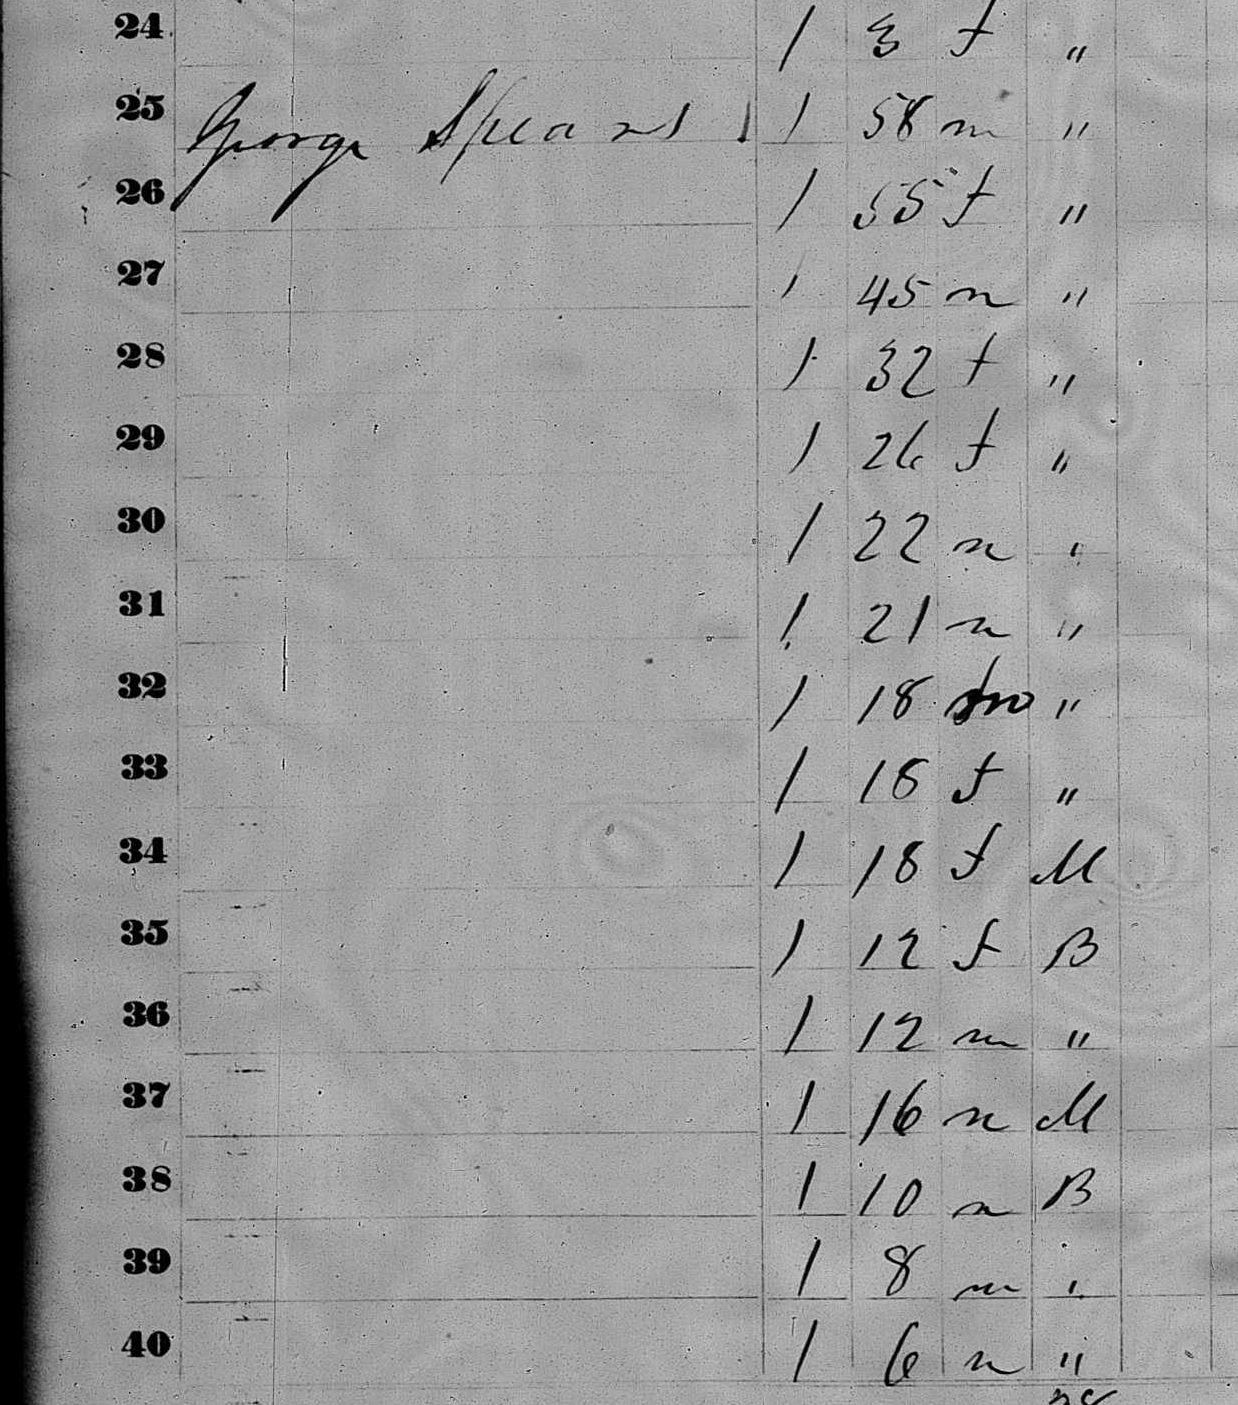 24 1 3 f "
25 George Spears 1 1 58 m "
26 1 55 f "
27 1 45 m "
28 1 32 f "
29 1 26 f "
30 1 22 m "
31 1 21 m "
32 1 18 m "
33 1 18 f "
34 1 18 f M
35 1 12 f B
36 1 12 m "
37 1 16 m M
38 1 10 m B
39 1 8 m "
40 1 6 m "